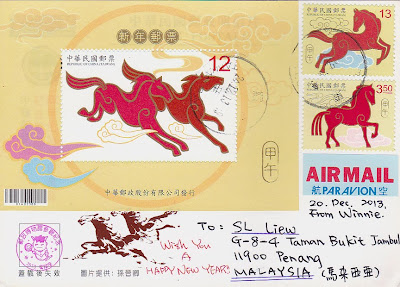 新年郵票
中華民國郵票
REPUBLIC OF CHINA (TAIWAN)
12
甲午
中華郵政股份有限公司發行
中華民國郵票
REPUBLIC OF CHINA (TAIWAN)
13
甲午
中華民國郵票
REPUBLIC OF CHINA (TAIWAN)
3.50
甲午
AIRMAIL
航 PAR AVION 空
20. Dec. 2013.
From Winnie.
To: SL Liew
G-8-4 Taman Bukit Jambul
11900 Penang
MALAYSIA (馬來西亞)
Wish You
A
HAPPY NEW YEAR!
蓋銷後失效
圖片提供:孫晉卿